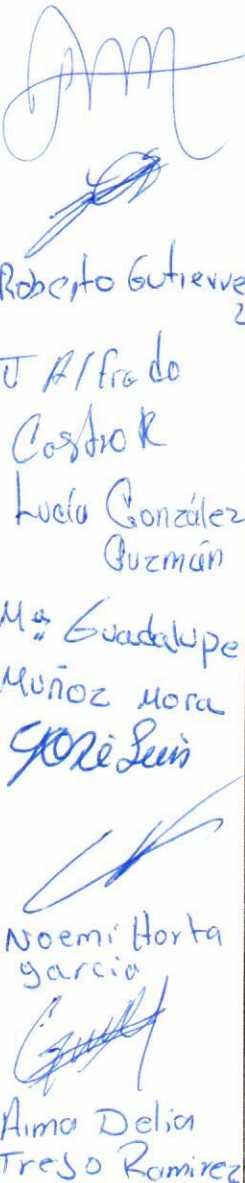 Roberto Gutierre
z
J Alfredo
Castro R
Lucía González
Guzmán
Ma Guadalupe
Muñoz Mora
José Luis
Noemi Horta
garcia
Alma Delia
Trejo Ramirez